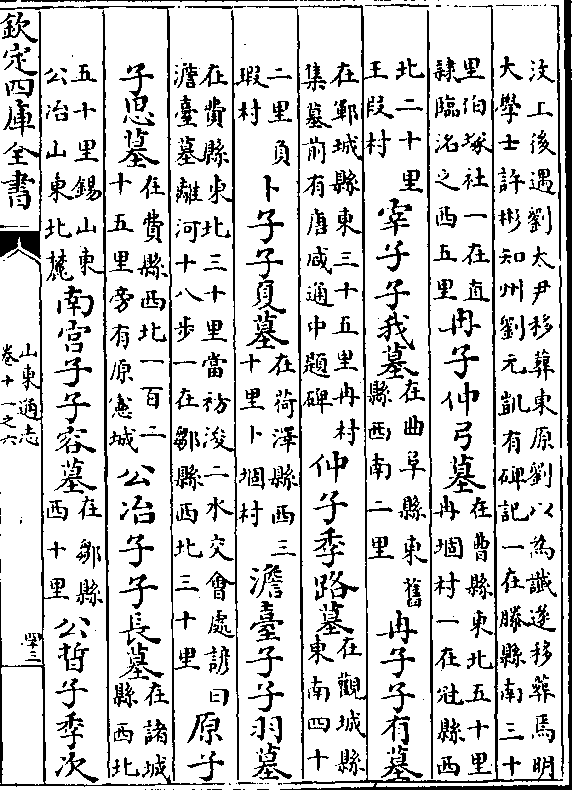 汶上後遇劉太尹移葬東原劉以為讖遂移葬焉明
大學士許彬知州劉元凱有碑記一在滕縣南三十
里伯塚社一在直
隸臨洺之西五里
冉子仲弓墓
在曹縣東北五十里
冉堌村一在冠縣西
北二十里
王段村
宰子子我墓
在曲阜縣東舊
縣西南二里
冉子子有墓
在鄆城縣東三十五里冉村
集墓前有唐咸通中題碑
仲子季路墓
在觀城縣
東南四十
二里負
瑕村
卜子子夏墓
在荷澤縣西三
十里卜堌村
澹臺子子羽墓
在費縣東北三十里當祊浚二水交會處諺曰
澹臺墓離河十八步一在鄒縣西北三十里
原子
子思墓
在費縣西北一百二
十五里旁有原憲城
公冶子子長墓
在諸城
縣西北
五十里錫山東
公冶山東北麓
南宫子子容墓
在鄒縣
西十里
公晳子季次
欽定四庫全書
山東通志
卷十一之六
罕三